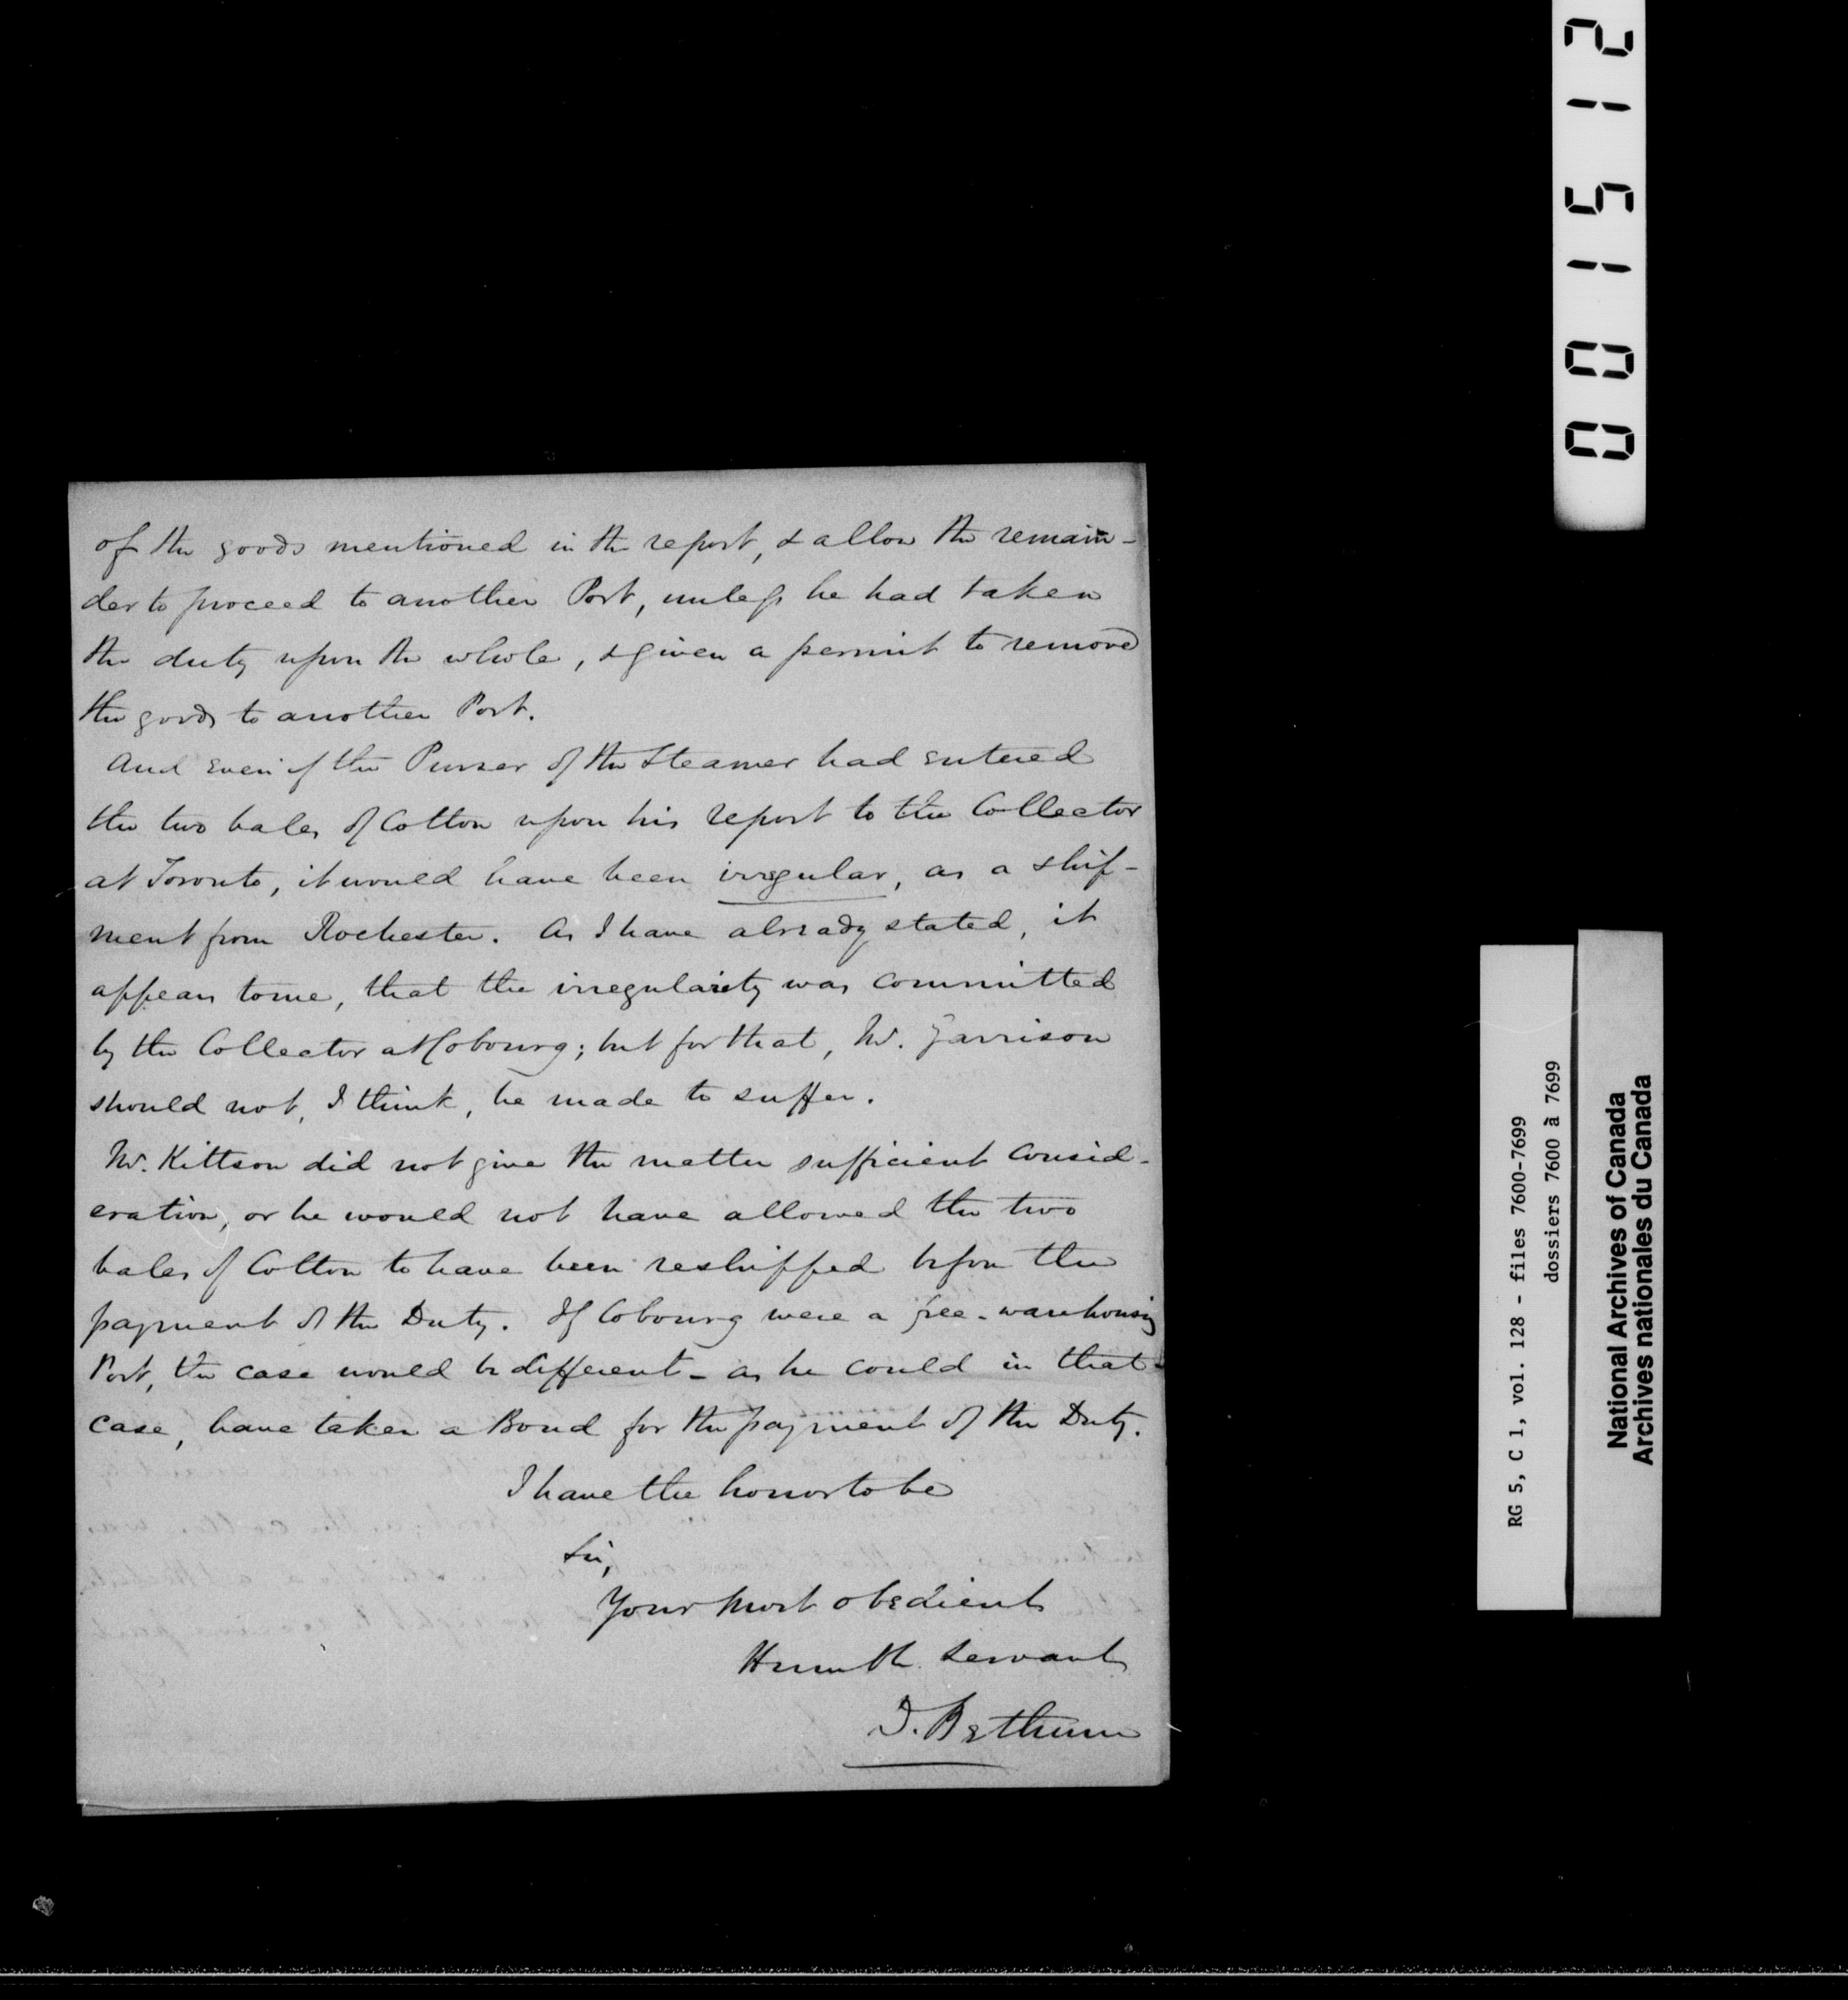 of the goods mentioned in the report, & allow the remain-
der to proceed to another Port, unless he had taken
the duty upon the whole, & given a permit to remove
the goods to another Port.
And even if the Purser of the Steamer had entered
the two bales of Cotton upon his report to the Collector
at Toronto, it would have been irregular, as a ship-
ment from Rochester. As I have already stated, it
appears to me, that the irregularity was committed
by the Collector at Cobourg; but for that, Mr. Garrison
should not, I think, be made to suffer.
Mr. Kittson did not give the matter sufficient consid-
eration, or he would not have allowed the two
bales of Cotton to have been reshipped before the
payment of the Duty. If Cobourg were a free-warehousing
Port, the case would be different - as he could in that
case, have taken a Bond for the payment of the Duty.
I have the honor to be
Sir,
Your most obedient
Humble Servant
D. Bethune
001512
RG 5, C 1, vol. 128 - files 7600-7699
dossiers 7600 à 7699
National Archives of Canada
Archives nationales du Canada